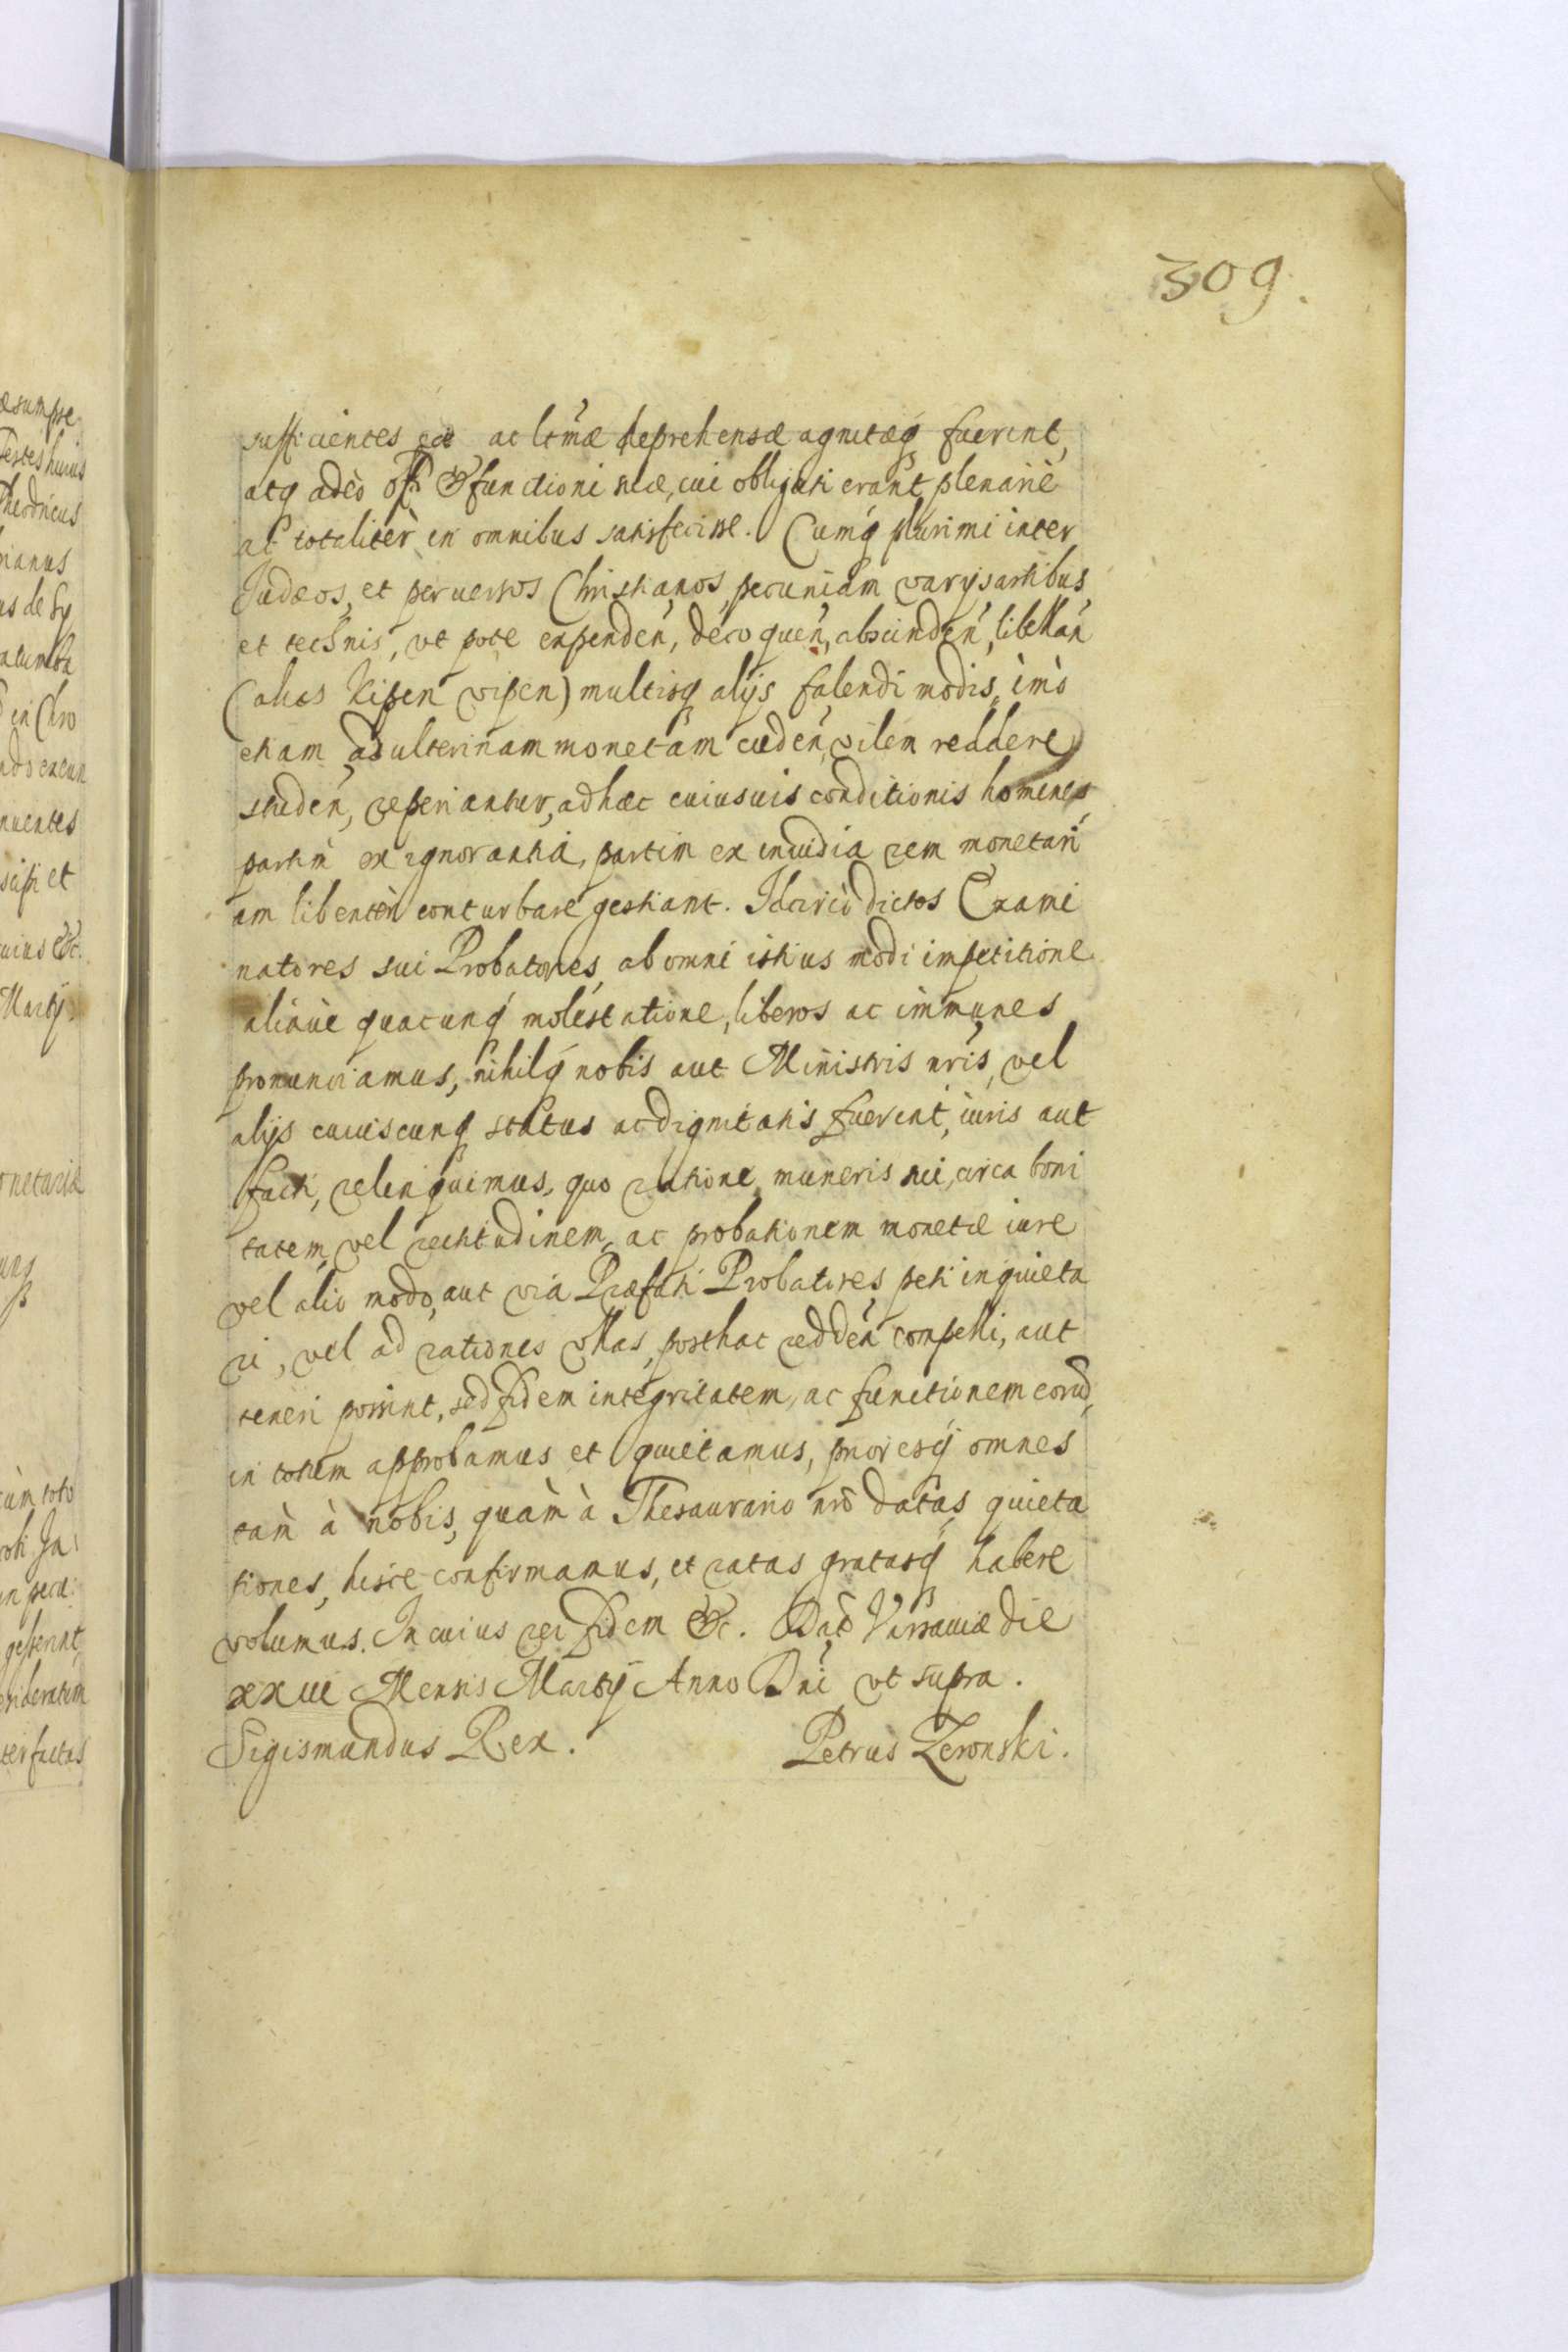 309.
sufficientes ac ltmæ deprehensæ agnitæq fuerint,
atq adeò offi & functioni suæ, cui obligati erant plenariè
ac totalitèr in omnibus satisfecisse. Cumq plurimi inter
Judæos, et peruersos Christianos, pecuniam varijs artibus,
et technis, vt pote expenden, decoquen, abscinden, libellan
(alias Kipen vipen) multisq alijs falendi modis, imò
etiam adulterinam monetam cuden, vilem reddere
studen, reperiantur, ad hæc cuiusuis conditionis homines,
partim ex ignorantiâ, partim ex inuidia rem monetari
am libentèr conturbare gestiant. Idcircò dictos Exami
natores sui Probatores, ab omni istius modi impetitione
aliàue quacunq molestatione, liberos ac immunes
pronunciamus, nihilq nobis aut Ministris nris, vel
alijs cuiuscunq status ac dignitatis fuerint, iuris aut
facti, relinquimus, quo ratione muneris sui, circa boni
tatem, vel rectitudinem, ac probationem monetæ iure
vel alio modo, aut via Præfati Probatores, peti inquieta
ri, vel ad rationes vllas, posthac redden compelli, aut
teneri possint, sed fidem integritatem, ac functionem eorud,
in totum approbamus et quietamus, prioresq omnes
tàm à nobis, quàm à Thesaurario nro datas, quieta
tiones, hisce confirmamus, et ratas gratasq habere
volumus. In cuius rei fidem &c. Dat Varsauiæ die
xxvii Mensis Martij Anno Dni vt supra.
Sigismundus Rex. Petrus Zeronski.